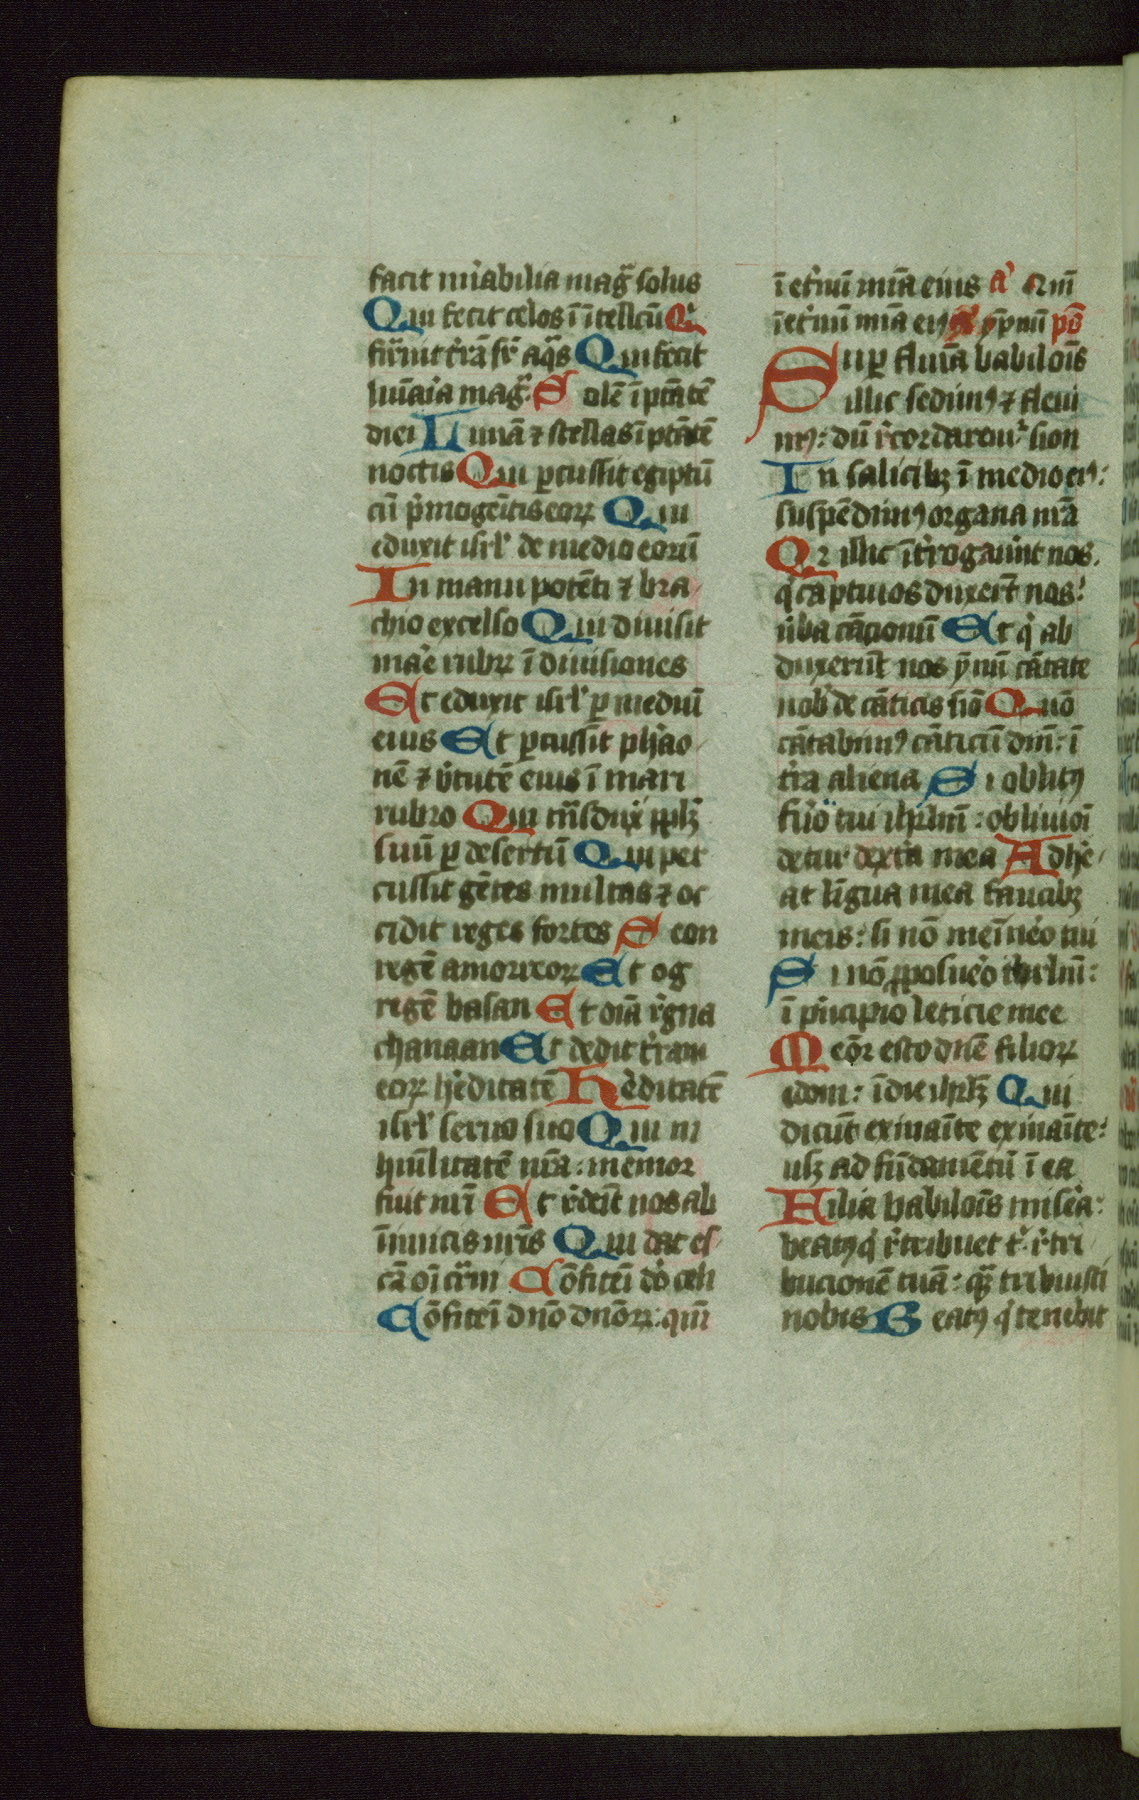 facit mi̾abilia mag̅ solus
Qui fecit celos ī ītellcū Q̾
firmit t̾rā sr̾ aq̅s Qui fecit
lūiaria mag̅ Solē ī ptātē
diei Lunā ⁊ stellas ī ptātē
noctis Qui ꝑcussit egiptū
cū p̾mogēitis eoꝝ Qui
eduxit isrl̾ de medio eorū
In manu potēti ⁊ bra
chio excelso Qui diuisit
mar̾e rubꝝ ī diuisiones
Et eduxit isrl̾ ꝑ mediū
eius Et ꝑcussit phao
nē ⁊ v̾tutē eius ī mari
rubro Qui tn̅sdux̾ pplꝫ
suū ꝑ desertū Qui per
cussit gētes multas ⁊ oc
cidit reges fortes Seon
regē amorreoꝝ Et og
regē basan Et oīa r̾gna
chanaan Et dedit t̾ram
eoꝝ h̾editatē Hereditatē
isrl̾ seruo suo Quia in
humilitatē nr̅a: memor
fuit nr̅i Et r̾demit nos ab
īimicis nr̅is Qui dat es
cā oi̅ carni Cōfitei̅ dō celi
Cōfitei̅ dn̅o dn̅oꝝ: qm̅
ī et̾nū mi̅a eius a̾ Qm̅
ī et̾nū mi̅a eiꝰ ps̅
Suꝑ fluīa babilois̅
illic sedimꝰ ⁊ fleui
mꝰ: dū r̾cordarem̾ sion
In salicibꝫ ī medio eiꝰ:
suspēdimꝰ organa nr̅a
Qꝛ illic īt̾rogauūt nos
q̾ captiuos duxer̅t nos:
v̾ba cācionū Et q̾ ab
duxerūt nos ymnū cātate
nob̾ de cāticis siō Quō
cātabimꝰ cāticū dn̅i: ī
t̾ra aliena Si oblitꝰ
fu̾o tui ihrlm̅: obliuioi̅
detur dext̾a mea Adhe
at līgua mea faucibꝫ
meis: si nō memi̅ero tui
Si nō ꝓposuero ihrlm̅:
ī p̾ncipio leticie mee
Memor esto dn̅e filioꝝ
edom: ī die ihrlꝫ Qui
dicūt exinaīte exinaīte:
usqꝫ ad fūdamētū ī ea
Filia babilois̅ misera:
beatꝰ q̾ r̾tribuet t̾ r̾tri
bucionē tuā: quā tribuisti
nobis Beatꝰ q̾ tenebit